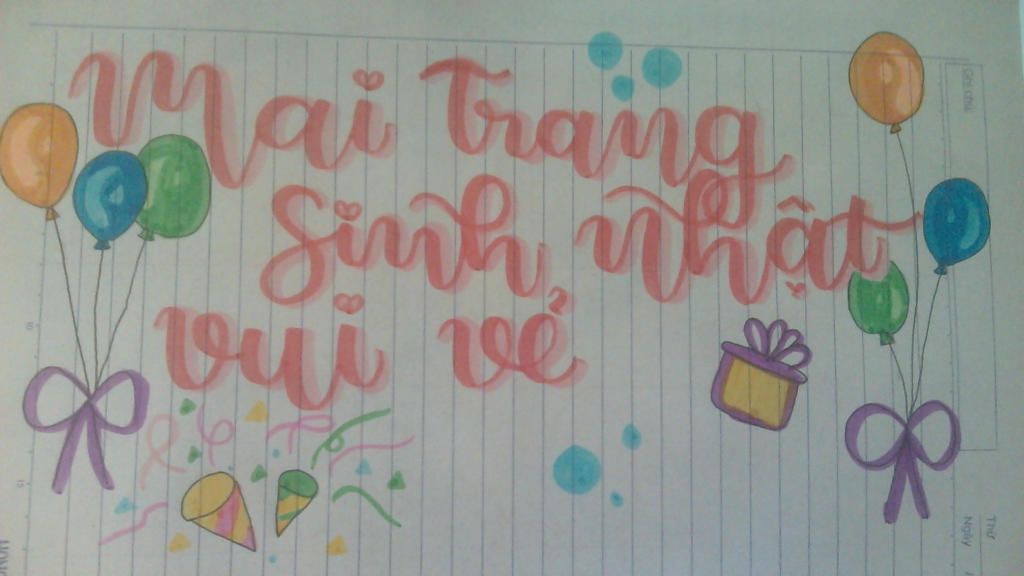 Mai Trang
Sinh nhật
vui vẻ
Thứ
Ngày